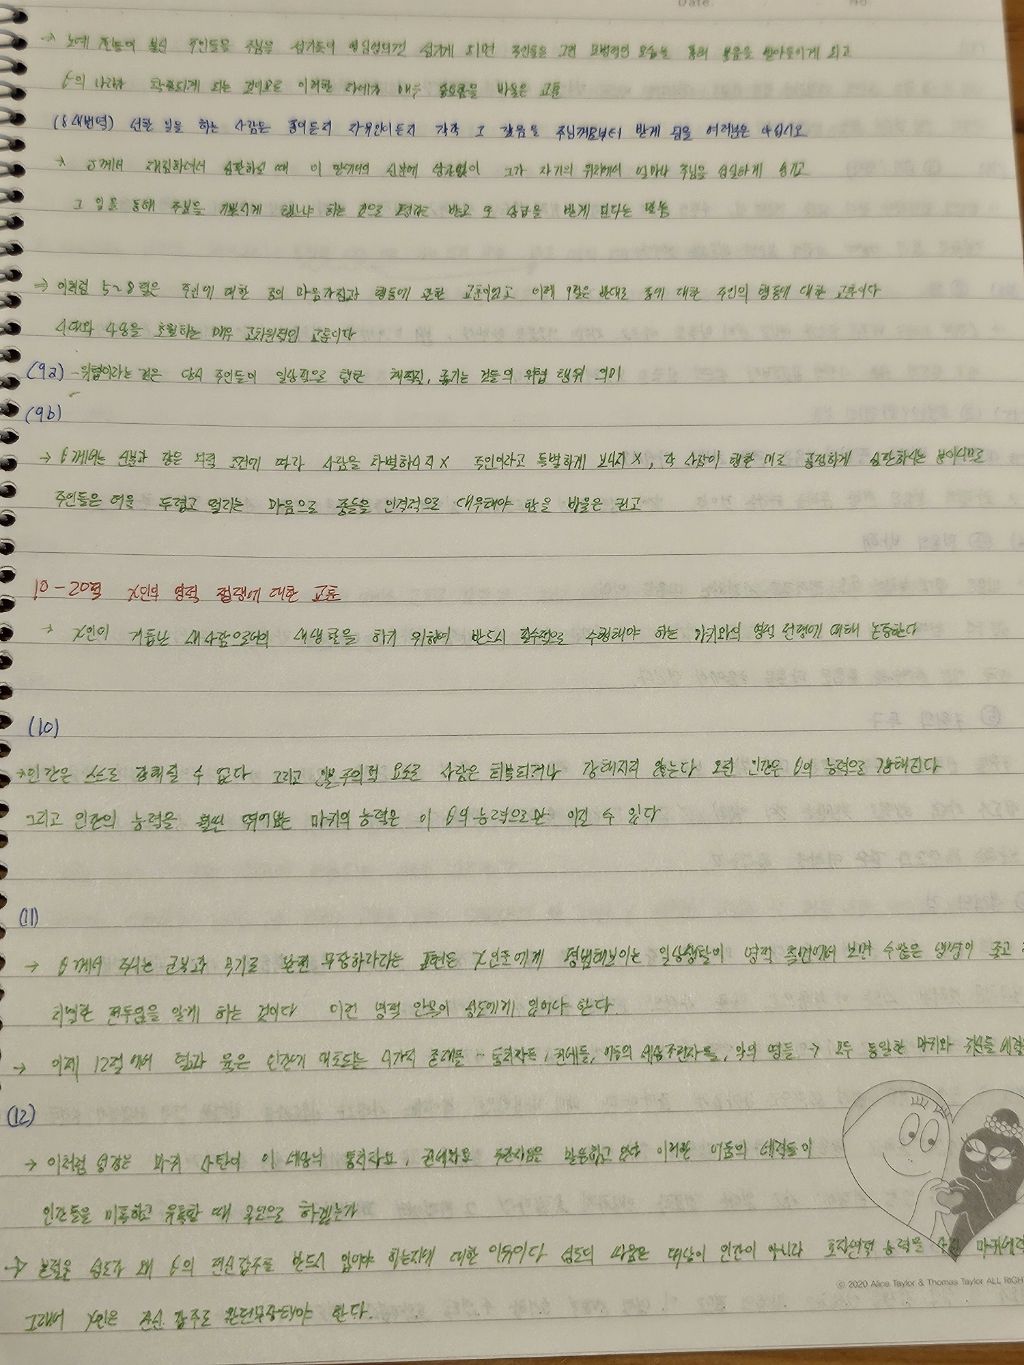 Date. No.
→ 노예 신분의 불신 주인들을 주님을 섬기듯이 섬기게 되면 주인들은 그런 모범적인 모습을 통해 복음을 받아들이게 되고
G의 나라가 확장되게 되는 것이므로 이러한 자세가 매우 중요함을 바울은 교훈
(8 새번역) 선한 일을 하는 사람은 종이든지 자유인이든지 각각 그 갚음을 주님께로부터 받게 됨을 여러분은 아십시오
→ G께서 재림하셔서 심판하실 때 이 땅에서의 신분에 상관없이 그가 자기의 위치에서 얼마나 주님을 성실하게 섬기고
그 일을 통해 주님을 기쁘시게 했느냐 하는 것으로 평가를 받고 또 상급을 받게 된다는 말씀
→ 이처럼 5~8절은 주인에 대한 종의 마음가짐과 행동에 관한 교훈이었고 이제 9절은 반대로 종에 대한 주인의 행동에 대한 교훈이다
시대와 사상을 초월하는 매우 고차원적인 교훈이다
(9a) - 위협이라는 것은 당시 주인들이 일상적으로 행한 채찍질, 굶기는 것들의 위협 행위 의미
(9b)
→ G께서는 신분과 같은 외적 조건에 따라 사람을 차별하시지 X 주인이라고 특별하게 보시지 X, 각 사람이 행한 대로 공정하게 심판하시는 분이시므로
주인들은 이를 두렵고 떨리는 마음으로 종들을 인격적으로 대우해야 함을 바울은 권고
10-20절 X인의 영적 전쟁에 대한 교훈
→ X인이 거듭난 새사람으로서의 새생활을 하기 위하여 반드시 필수적으로 수행해야 하는 마귀와의 영적 전쟁에 대해 논증한다
(10)
→ 인간은 스스로 강해질 수 없다 그리고 인본주의적 요소로 사람은 회복되거나 강해지지 않는다 오직 인간은 G의 능력으로 강해진다
그리고 인간의 능력을 훨씬 뛰어넘는 마귀의 능력은 이 G의 능력으로만 이길 수 있다
(11)
→ G께서 주시는 군복과 무기로 완전 무장하라라는 표현은 X인들에게 평범해보이는 일상생활이 영적 측면에서 보면 수많은 생명이 죽고
치열한 전투임을 알게 하는 것이다 이런 영적 안목이 성도에게 있어야 한다.
→ 이제 12절에서 혈과 육은 인간의 4가지 존재들 - 통치자들, 권세들, 어둠의 세상주관자들, 악의 영들 → 모두 동일한 마귀와 귀신들
(12)
→ 이처럼 성경은 마귀 사탄이 이 세상의 통치자요, 권세와 주관자임을 말씀하고 있다 이러한 어둠의 세력들이
인간들을 미혹하고 유혹할 때 무엇으로 하겠는가
→ 본절은 성도가 왜 G의 전신갑주를 반드시 입어야 하는지에 대한 이유이다 성도의 싸움은 대상이 인간이 아니라 초자연적 능력을 마귀
그래서 X인은 전신 갑주로 완전무장해야 한다.
© 2020 Alice Taylor & Thomas Taylor ALL RIGH